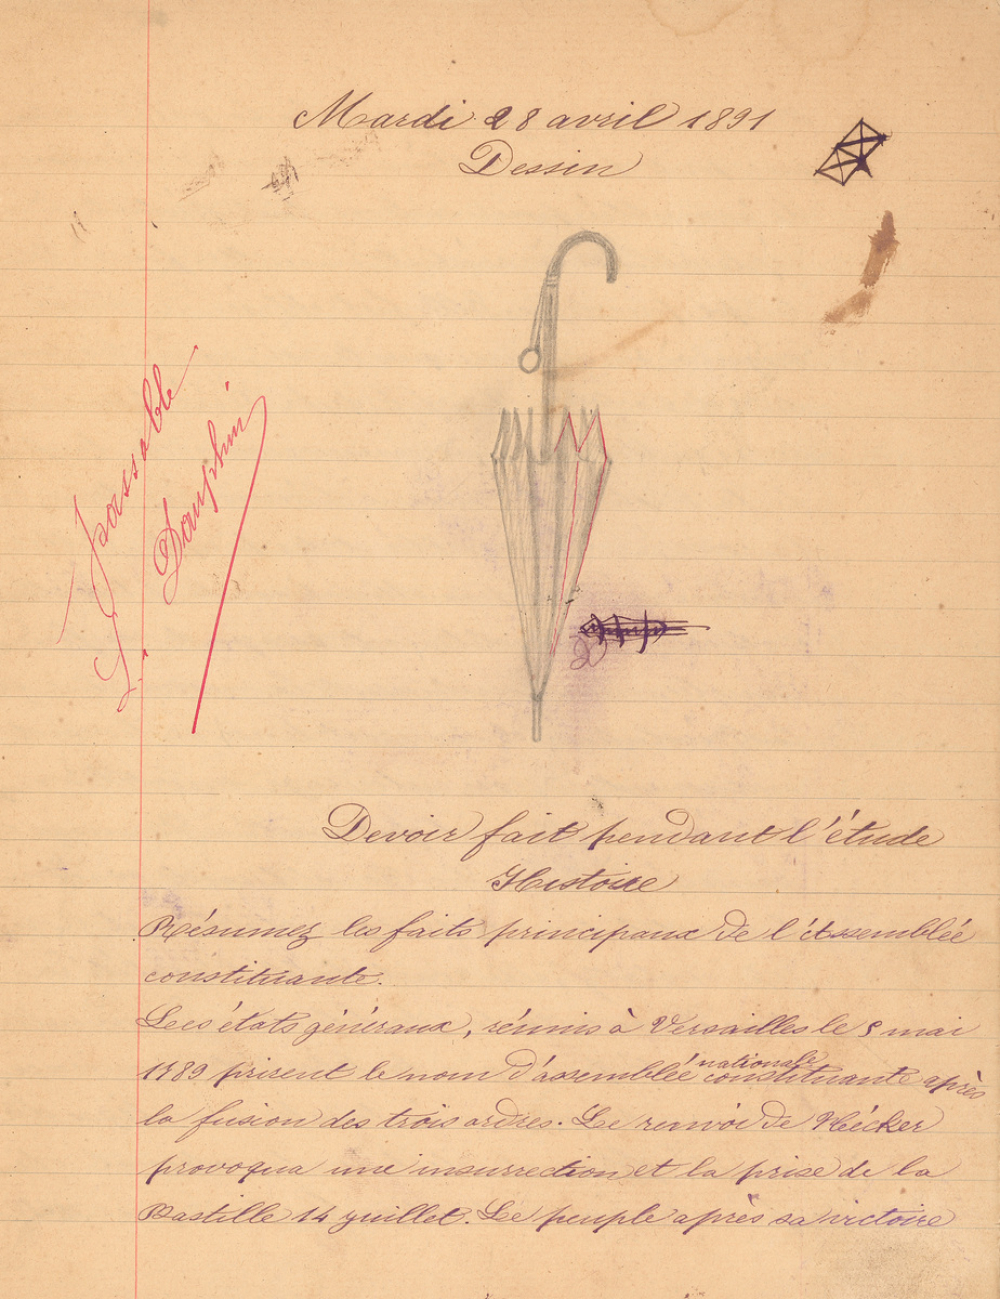 Mardi 28 avril 1891
Dessin
passable
Dauphin
Devoir fait pendant l'étude
Histoire
Résumez les faits principaux de l'Assemblée
constituante.
Les états généraux, réunis à Versailles le 5 mai
nationale
1789 prirent le nom d'assemblée constituante après
la fusion des trois ordres. Le renvoi de Nécker
provoqua une insurrection et la prise de la
Bastille 14 juillet. Le peuple après sa victoire